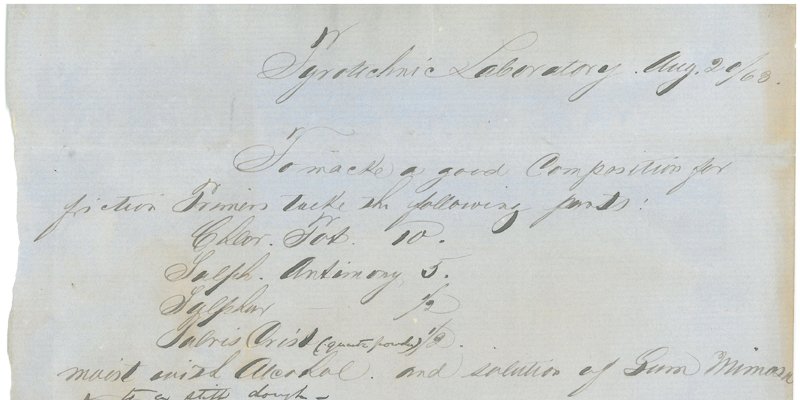 Pyrotechnic Laboratory. Aug. 20/63.
To macke a good Composition for
friction Primers tacke the following parts:
Chlor. Pot. 10.
Sulph. Antimony 5.
Sulphur 1/2
Pulvis Crist (quartz powder) 1/2.
moist with Alcohol. and solution of Gum Mimosa
to a stiff dough—